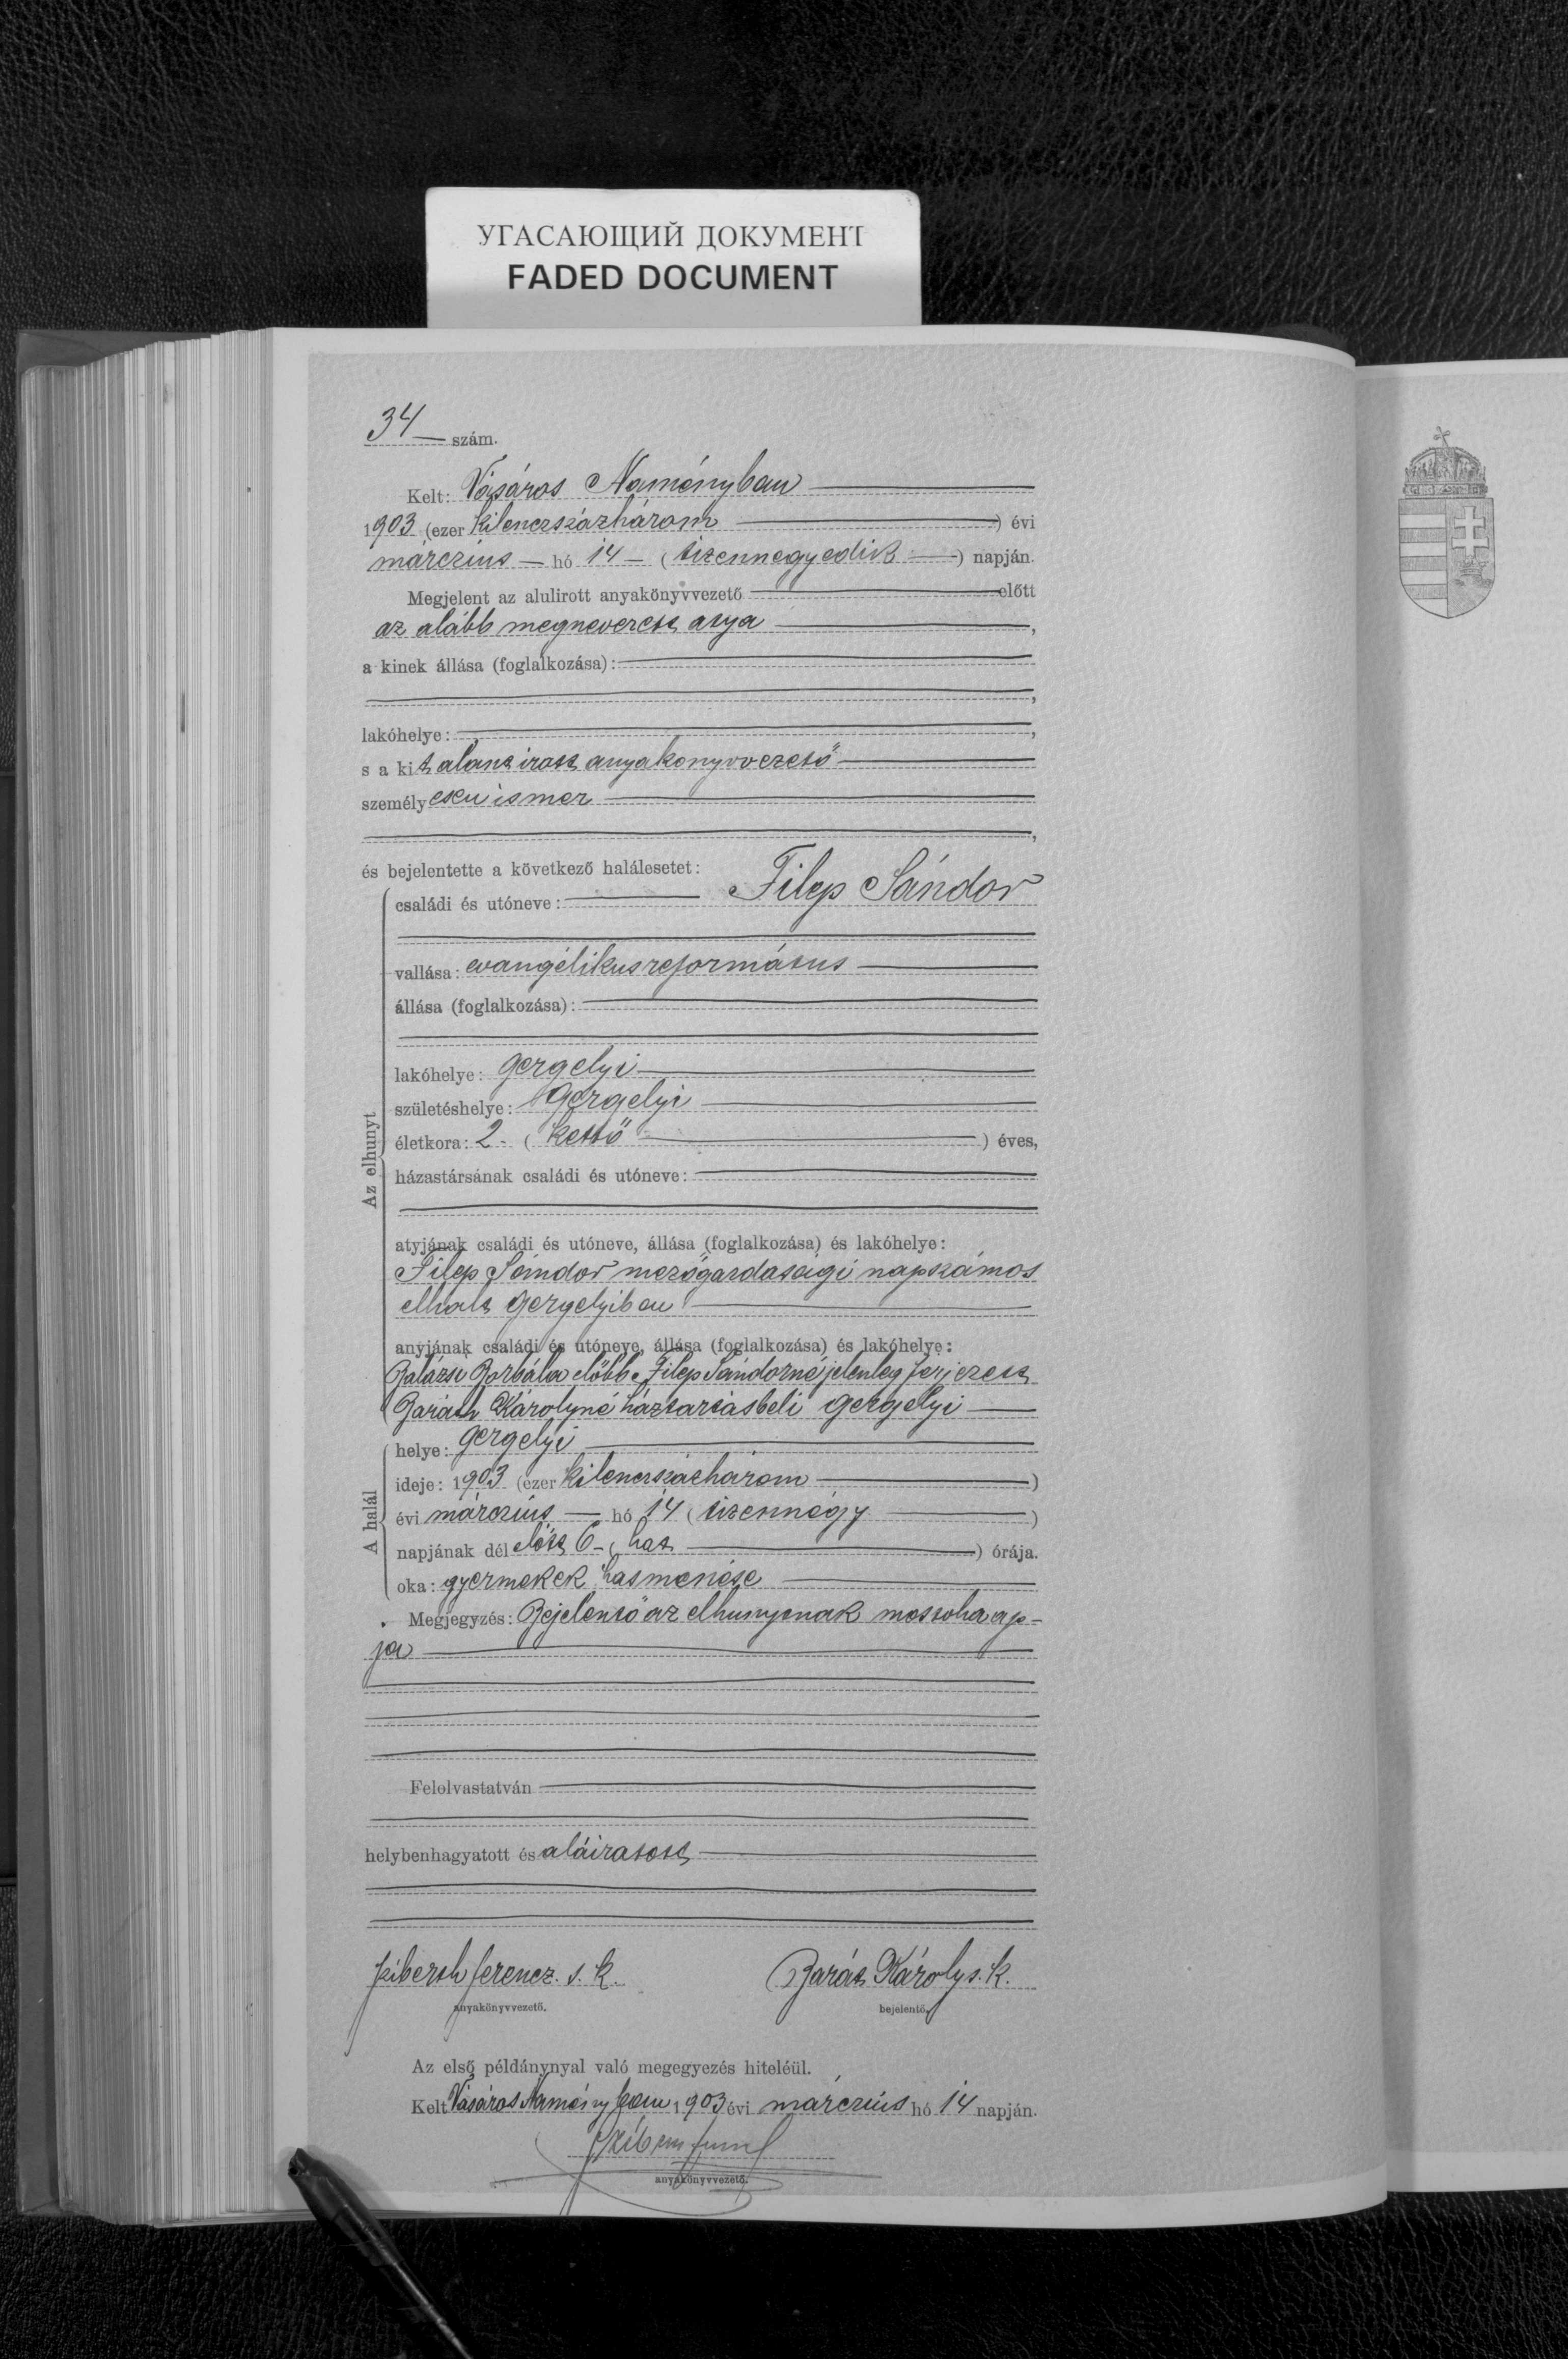 УГАСАЮЩИЙ ДОКУМЕНТ
FADED DOCUMENT
34 szám.
Kelt: Vásáros Naményban
1903 (ezer kilenczszázhárom) évi
márczius hó 14 (tizennegyedik) napján.
Megjelent az alulirott anyakönyvvezető előtt
az alább megnevezett atya,
a kinek állása (foglalkozása):
,
lakóhelye: ,
s a kit alant irott anyakönyvvezető
személyesen ismer
,
és bejelentette a következő halálesetet:
családi és utóneve: Filep Sándor
vallása: evangélikus református
állása (foglalkozása):
lakóhelye: Gergelyi
születéshelye: Gergelyi
életkora: 2 (kettő) éves,
házastársának családi és utóneve:
Az elhunyt
atyjának családi és utóneve, állása (foglalkozása) és lakóhelye:
Filep Sándor mezőgazdasági napszámos
elhalt Gergelyiben
anyjának családi és utóneve, állása (foglalkozása) és lakóhelye:
Balázsi Borbála előbb Filep Sándorné jelenleg férjezett
Baráth Károlyné háztartásbeli Gergelyi
helye: Gergelyi
ideje: 1903 (ezer kilenczszázhárom)
évi márczius hó 14 (tizennégy)
A halál
napjának dél előtt 6 (hat) órája.
oka: gyermekek hasmenése
Megjegyzés: Bejelentő az elhunytnak mostoha ap-
ja
Felolvastatván
helybenhagyatott és aláiratott
Ferencz s. k. Barát Károly s. k.
anyakönyvvezető. bejelentő.
Az első példánynyal való megegyezés hiteléül.
Kelt Vásáros Naményban 1903 évi márczius hó 14 napján.
anyakönyvvezető.